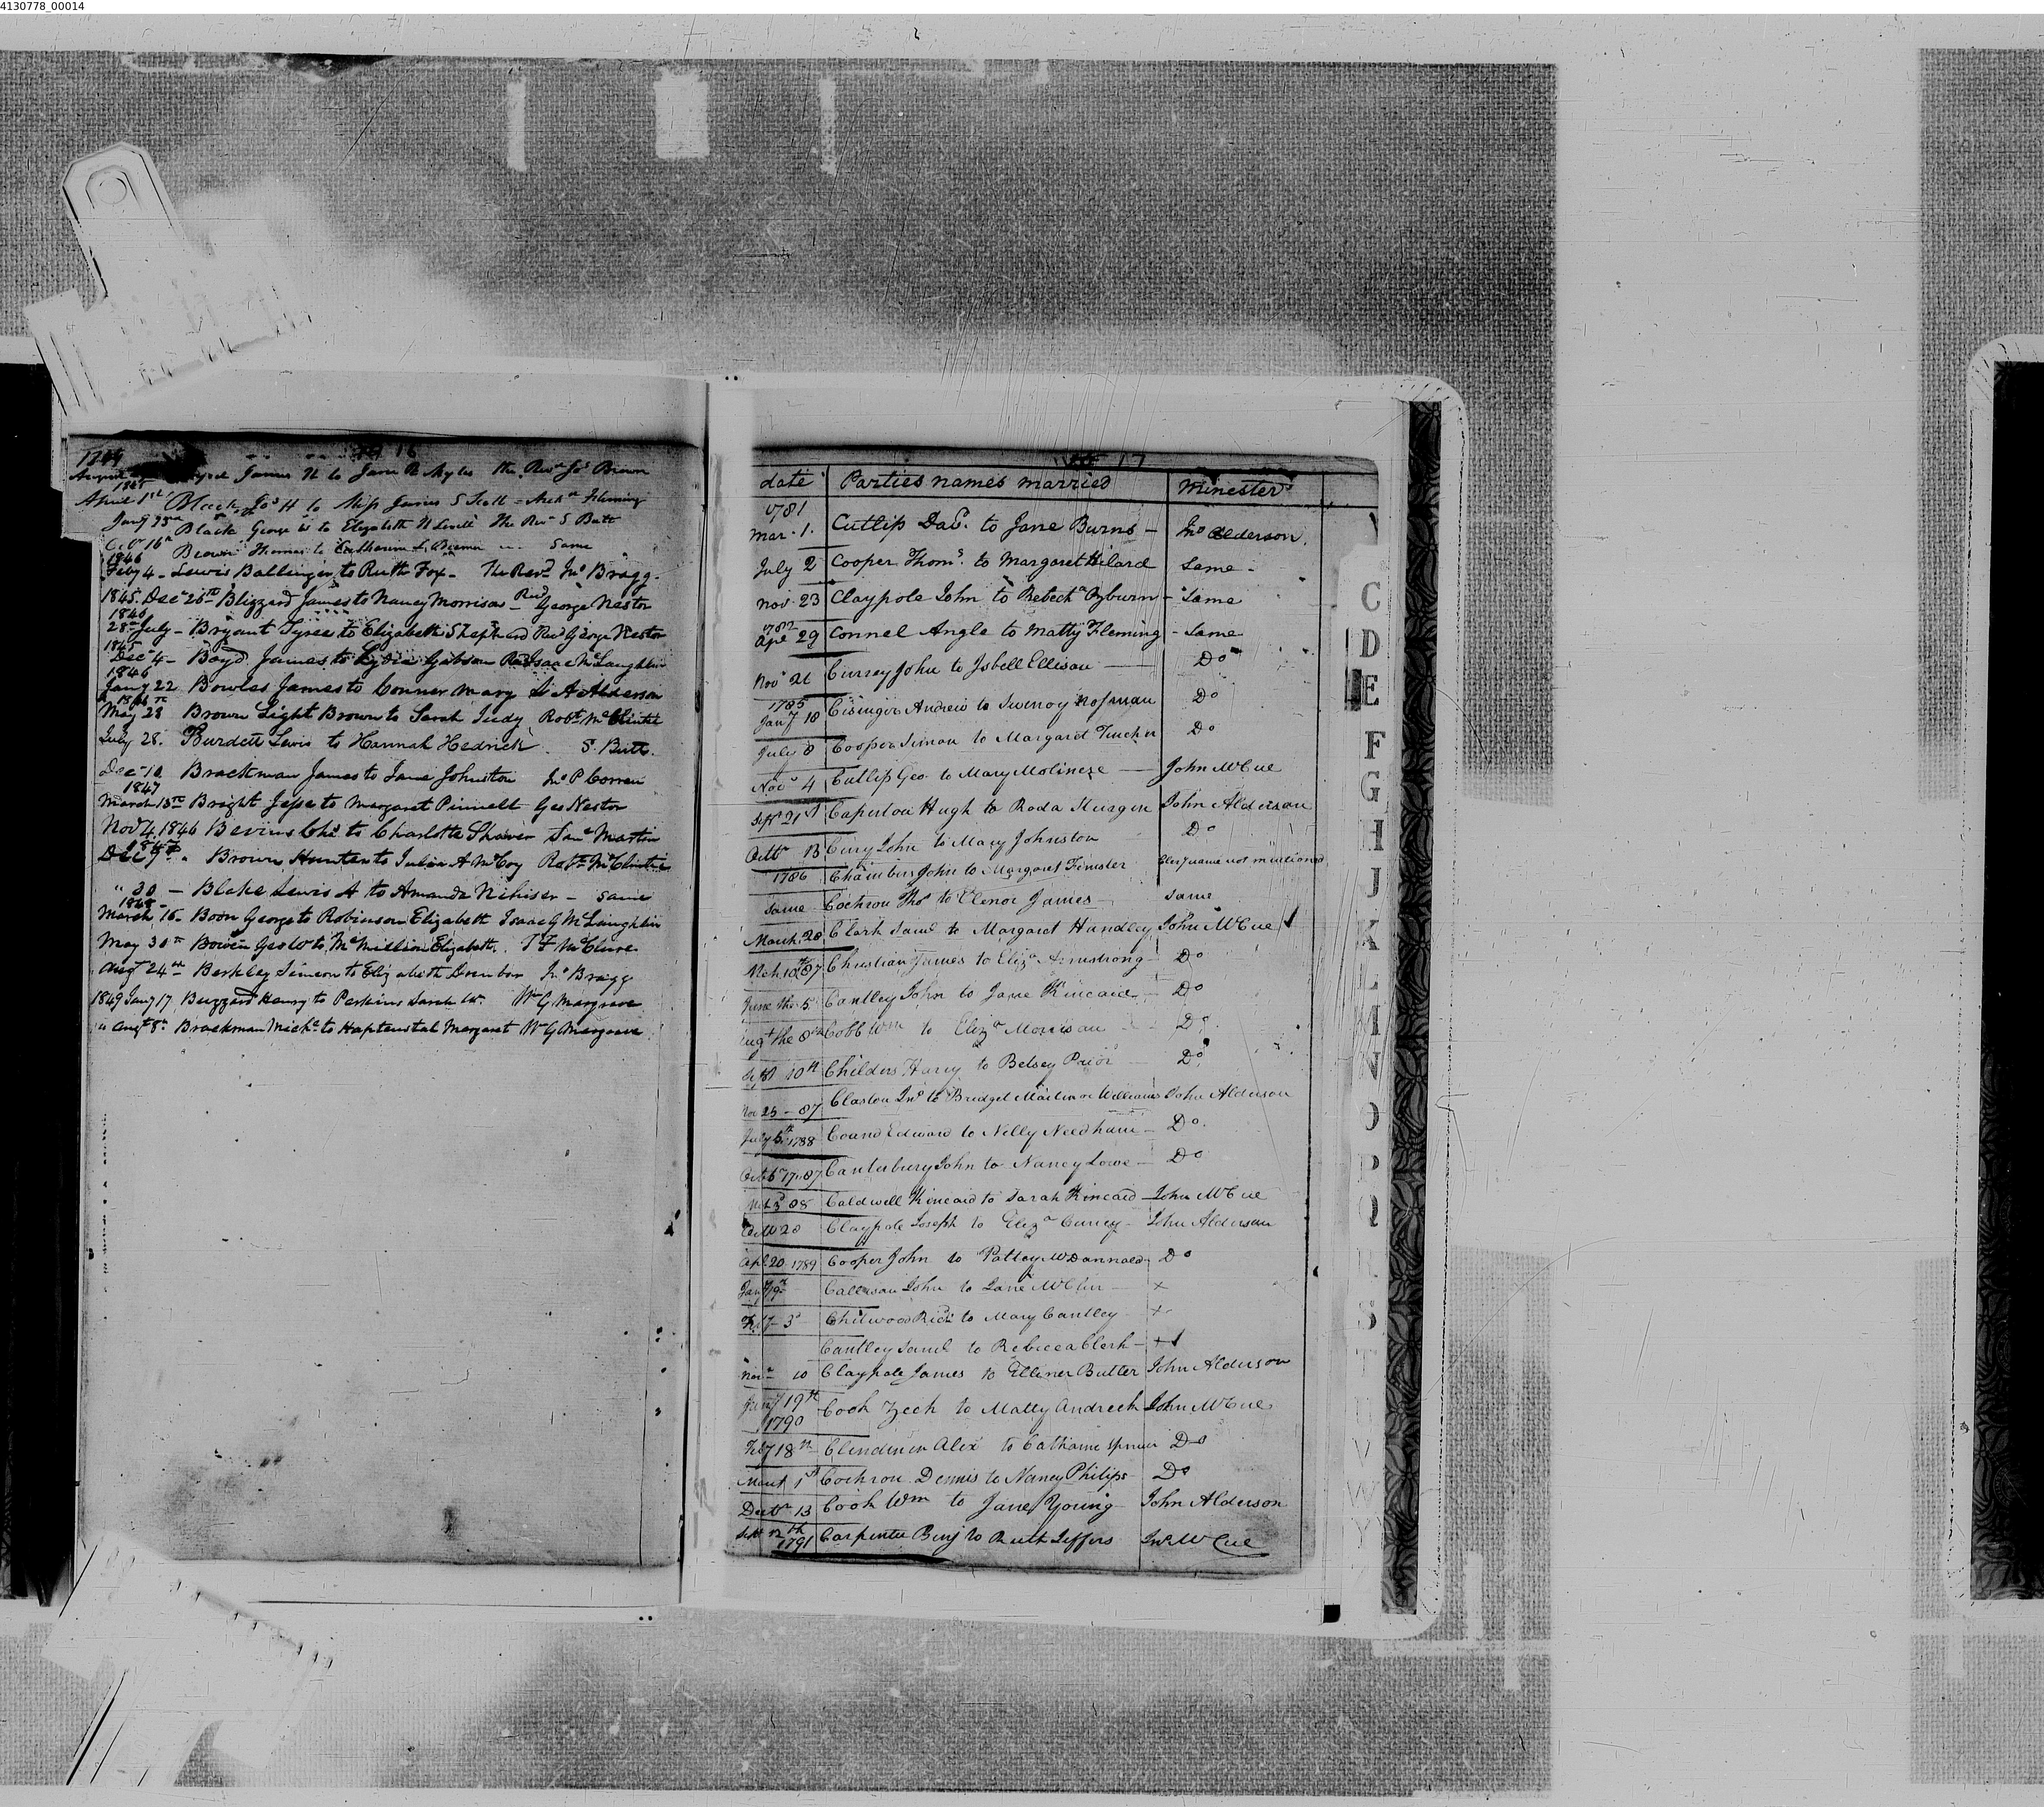 4130778_00014
16
James H to Jane R Myles the Revd Jos Brown
1845
April 1st Black Jos H to Miss James S Scott - Fleming
Jany 23rd Black George W to Elizabeth N Levell The Rev S Butt
Octr 16th Brown Thomas to Catharine L. Same
1846
Feby 4 - Lewis Ballinger to Ruth Fox - The Revd Jno Bragg -
1845. Decr 25th Blizzard James to Nancy Morrison - Revd George Nestor
1846
28th July - Bryant Tyree to Elizabeth Shepherd Revd George Nestor
1845
Decr 4 - Boyd James to Lydia Gibson Rev Isaac McLaughlin
1846
Jany 22 Bowles James to Conner Mary L A Alderson
May 28 Brown Light Brown to Sarah Judy Robt McClintic
July 28. Burdett Lewis to Hannah Hedrick. S. Butt.
Decr 10. Brackman James to Jane Johnston Jno P Correu
1847
March 15th Bright Jesse to Margaret Pinnell Geo Nestor
Novr 4 1846 Bevins Chs to Charlotte Shaver Saml Martin
1847
Dec 9th. Brown Hunter to Julia A McCoy Robt McClintic
" 30 - Blake Lewis A to Amanda - same
1848
March 16 - Boon George to Robinson Elizabeth Isaac G McLaughlin
May 30th Bowen Geo W to McMillion Elizabeth. T F McClure
Augt 24th Berkley Simeon to Elizabeth Jno Bragg
1849 Jany 17 Buzzard Henry to Perkins Sarah W. Wm G Margrave
" Augt 8th Brackman Michl to Haptonstal Margaret Wm G Margrave
17
date Parties names married Minester
1781
Mar. 1. Cutlip Davd. to Jane Burns - Jno Alderson.
July 2 Cooper Thoms. to Margaret Hilard Same -
Nov. 23 Claypole John to Rebecha Ozburn - Same
1782
Apr 29 Connel Angle to Matty Fleming - Same
Novr 26 Currey John to Isbell Ellison - Do
1785
Jany 18 Cisinger Andrew to Nosman Do
July 8 Cooper Simon to Margaret Tincher Do
Novr 4 Cutlip Geo. to Mary Molineze - John McCue
Sept 21st Caperton Hugh to Roda Sturgin John Alderson
Octbr 13 Cury John to Mary Johnston Do
1786 Chambers John to Margaret Fimster Clergy name not mentioned
same Cochron Thos to Elenor James - same
March. 20 Clark Saml to Margaret Handley John McCue
Mch. 10th 87 Christian James to Eliza Armstrong - Do
June the. 5. Cantley John to Jane Kincaid - Do
Augt the 8th Cobb Wm to Eliza Morrison Do.
Sept 10th Childers Harey to Betsey Prior Do.
Nov 25 - 87 Claston Jno to Bridget Martin or Williams John Alderson
July 5th 1788 Coand Edward to Nelly Needham - Do.
Octbr 17. 87 Canterbury John to Nancy Lowe - Do
88 Caldwell Kincaid to Sarah Kincaid - John McCue
Octbr 20 Claypole Joseph to Eliza Currey - John Alderson
Apl. 20. 1789 Cooper John to Patley McDannald Do
Jany 9th Callison John to Jane McClin - x
Feby - 3d Chitwood Richd to Mary Cantley x
Cantley Saml to Rebecca Clerk - x
Novr 10 Claypole James to Elliner Butler John Alderson
Jany 19th
1790 Cook Zech to Matty Andreek John McCue
Feby 18th Clendinin Alex to Catharine Do
March 1st Cochron Dennis to Nancy Philips Do
Decbr 13 Cook Wm to Jane Young John Alderson
Sept 12th
1791 Carpenter Benj to Ruth Jeffers Jno McCue
C
D
E
F
G
H
J
K
L
M
N
O
P
Q
R
S
T
U
V
W
Y